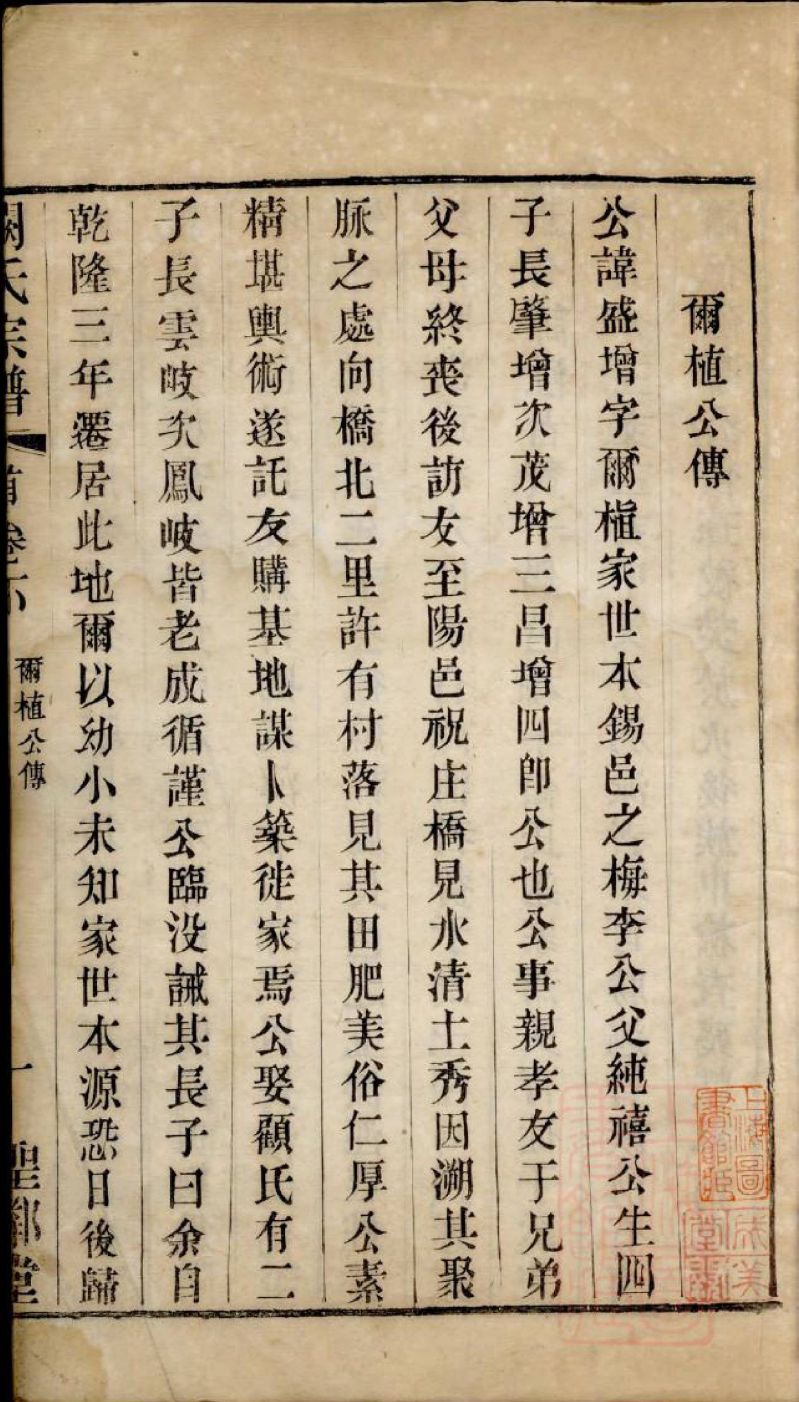 爾植公傳
公諱盛增字爾植家世本錫邑之梅李公父純禧公生四
子長肇增次茂增三昌增四卽公也公事親孝友于兄弟
父母終喪後訪友至陽邑祝庄橋見水清土秀因溯其聚
脉之處向橋北二里許有村落見其田肥美俗仁厚公素
精堪輿術遂託友購基地謀卜築徙家焉公娶顧氏有二
子長雲岐次鳳岐皆老成循謹公臨没誡其長子曰余自
乾隆三年遷居此地爾以幼小未知家世本源恐日後歸
氏宗譜 首卷下 爾植公傳 一 聖鄰堂
上海圖書館藏